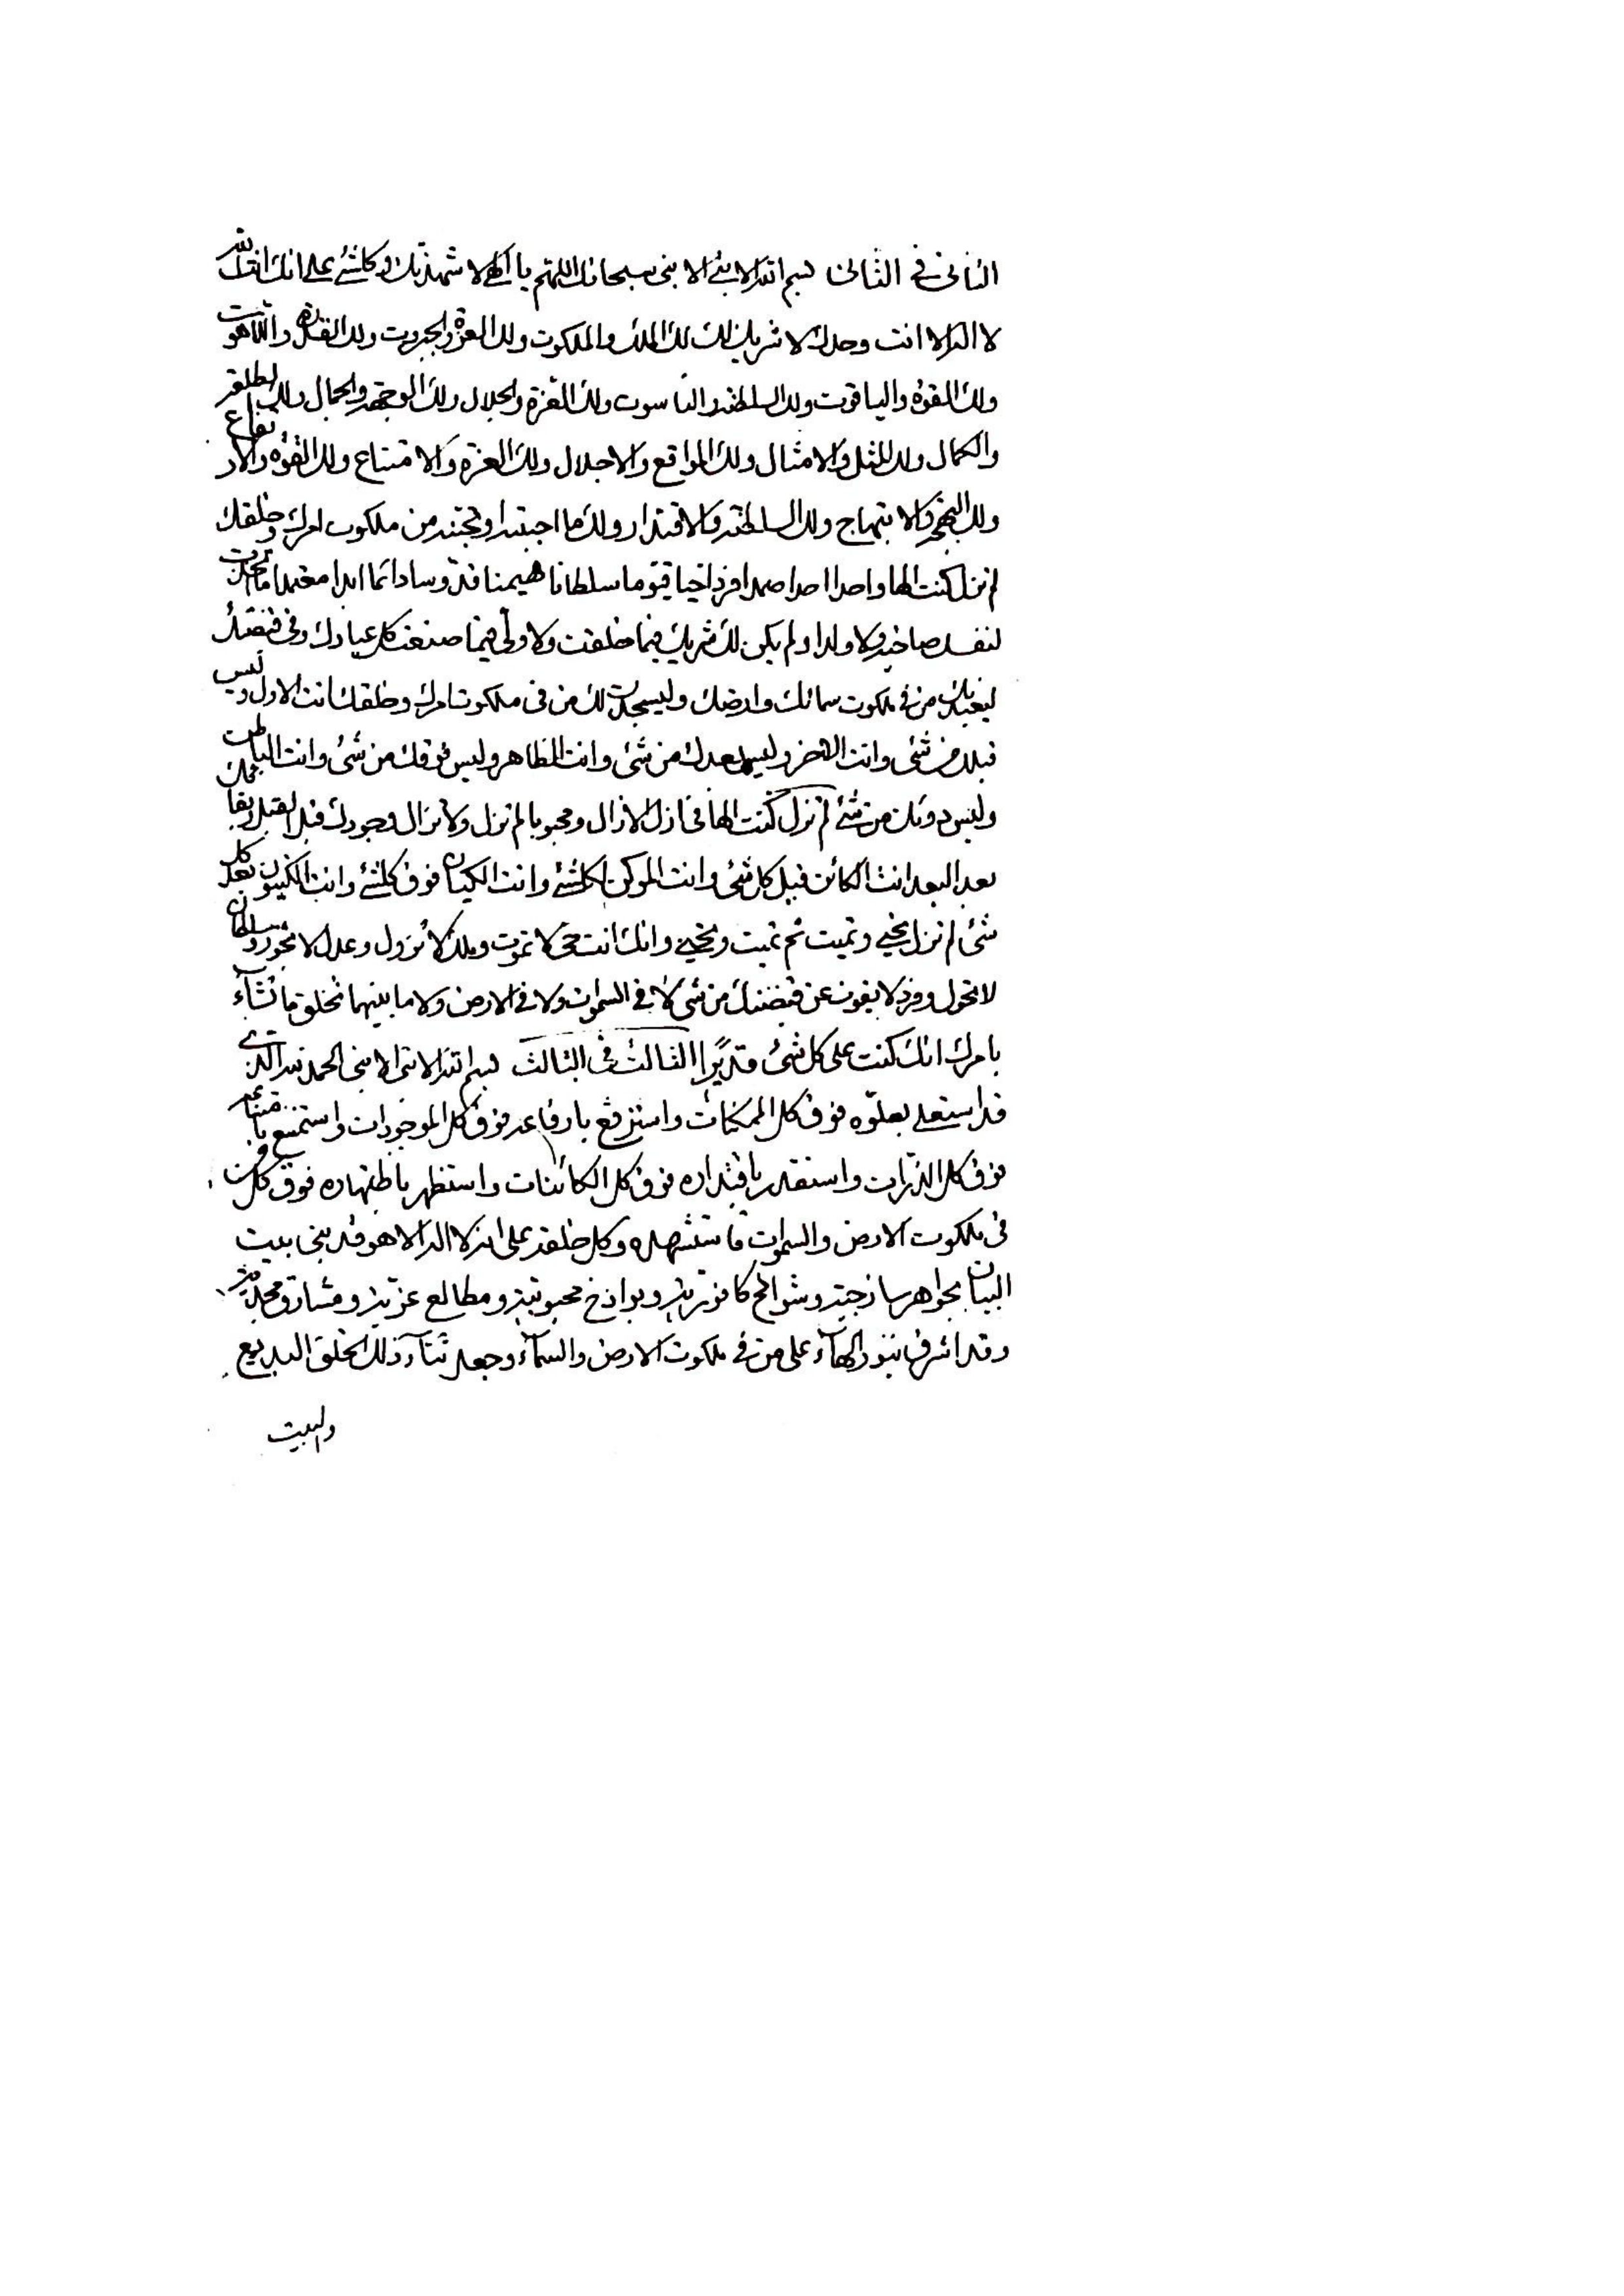 الثانی فی الثانی بسم الله الابنی الابنی سبحانک اللهم یا الهی لاشهدنک وکلشیء علی انک انت الله
لا اله الا انت وحدک لا شریک لک لک الملک والملکوت ولک العزة والجبروت ولک القدرة واللاهوت
ولک القوة والیاقوت ولک السلطنة والناسوت ولک العزة والجلال ولک الوجهة والجمال ولک الطلعة
والکمال ولک المثل والامثال ولک المواقع والاجلال ولک العزة والامتناع ولک القوة والارتفاع
ولک البهجة والابتهاج ولک السلطنة والاقتدار ولک ما احببته او تحبنه من ملکوت امرک وخلقک
لم تزل کنت الها واحدا احدا صمدا فردا حیا قیوما سلطانا مهیمنا قدوسا دائما ابدا معتمدا ما اتخذت
لنفسک صاحبة ولا ولدا ولم یکن لک شریک فیما خلقت ولا ولی فیما صنعت کل عبادک وفی قبضتک
لیعبدنک من فی ملکوت سمائک وارضک ولیسجدن لک من فی ملکوت امرک وخلقک انت الاول ولیس
قبلک من شیء وانت الاخر ولیس بعدک من شیء وانت الظاهر ولیس فوقک من شیء وانت الباطن
ولیس دونک من شیء لم تزل کنت الها فی ازل الازال ومحبوبا لم تزل ولا تزال وجودک قبل القبل وبقائک
بعد البعد انت الکائن قبل کل شیء وانت المکون لکلشیء وانت الکیان فوق کلشیء وانت الکینون بعد کل
شیء لم تزل تحیی وتمیت ثم تمیت وتحیی وانک انت حی لا تموت وملک لا تزول وعدل لا تجور وسلطان
لا تحول وفرد لا یفوت عن قبضتک من شیء لا فی السموات ولا فی الارض ولا ما بینهما تخلق ما تشآء
بامرک انک کنت علی کل شیء قدیرا الثالث فی الثالث بسم الله الابنی الابنی الحمد لله الذی
قد استعلی بعلوه فوق کل الممکنات واسترفع بارتفاعه فوق کل الموجودات واستمنع بامتناعه
فوق کل الذرات واستقدر باقتداره فوق کل الکائنات واستظهر باظهاره فوق کل من
فی ملکوت الارض والسموات فاستشهده وکل خلقه علی انه لا اله الا هو قد بنی بیت
البیان بجواهر ساذجیة وشوامخ کافوریة وبواذخ محبوبیة ومطالع عزیة ومشارق مجدیة
وقد اشرق بنور البهآء علی من فی ملکوت الارض والسمآء وجعله ثنآء ذلک الخلق البدیع
والبیت